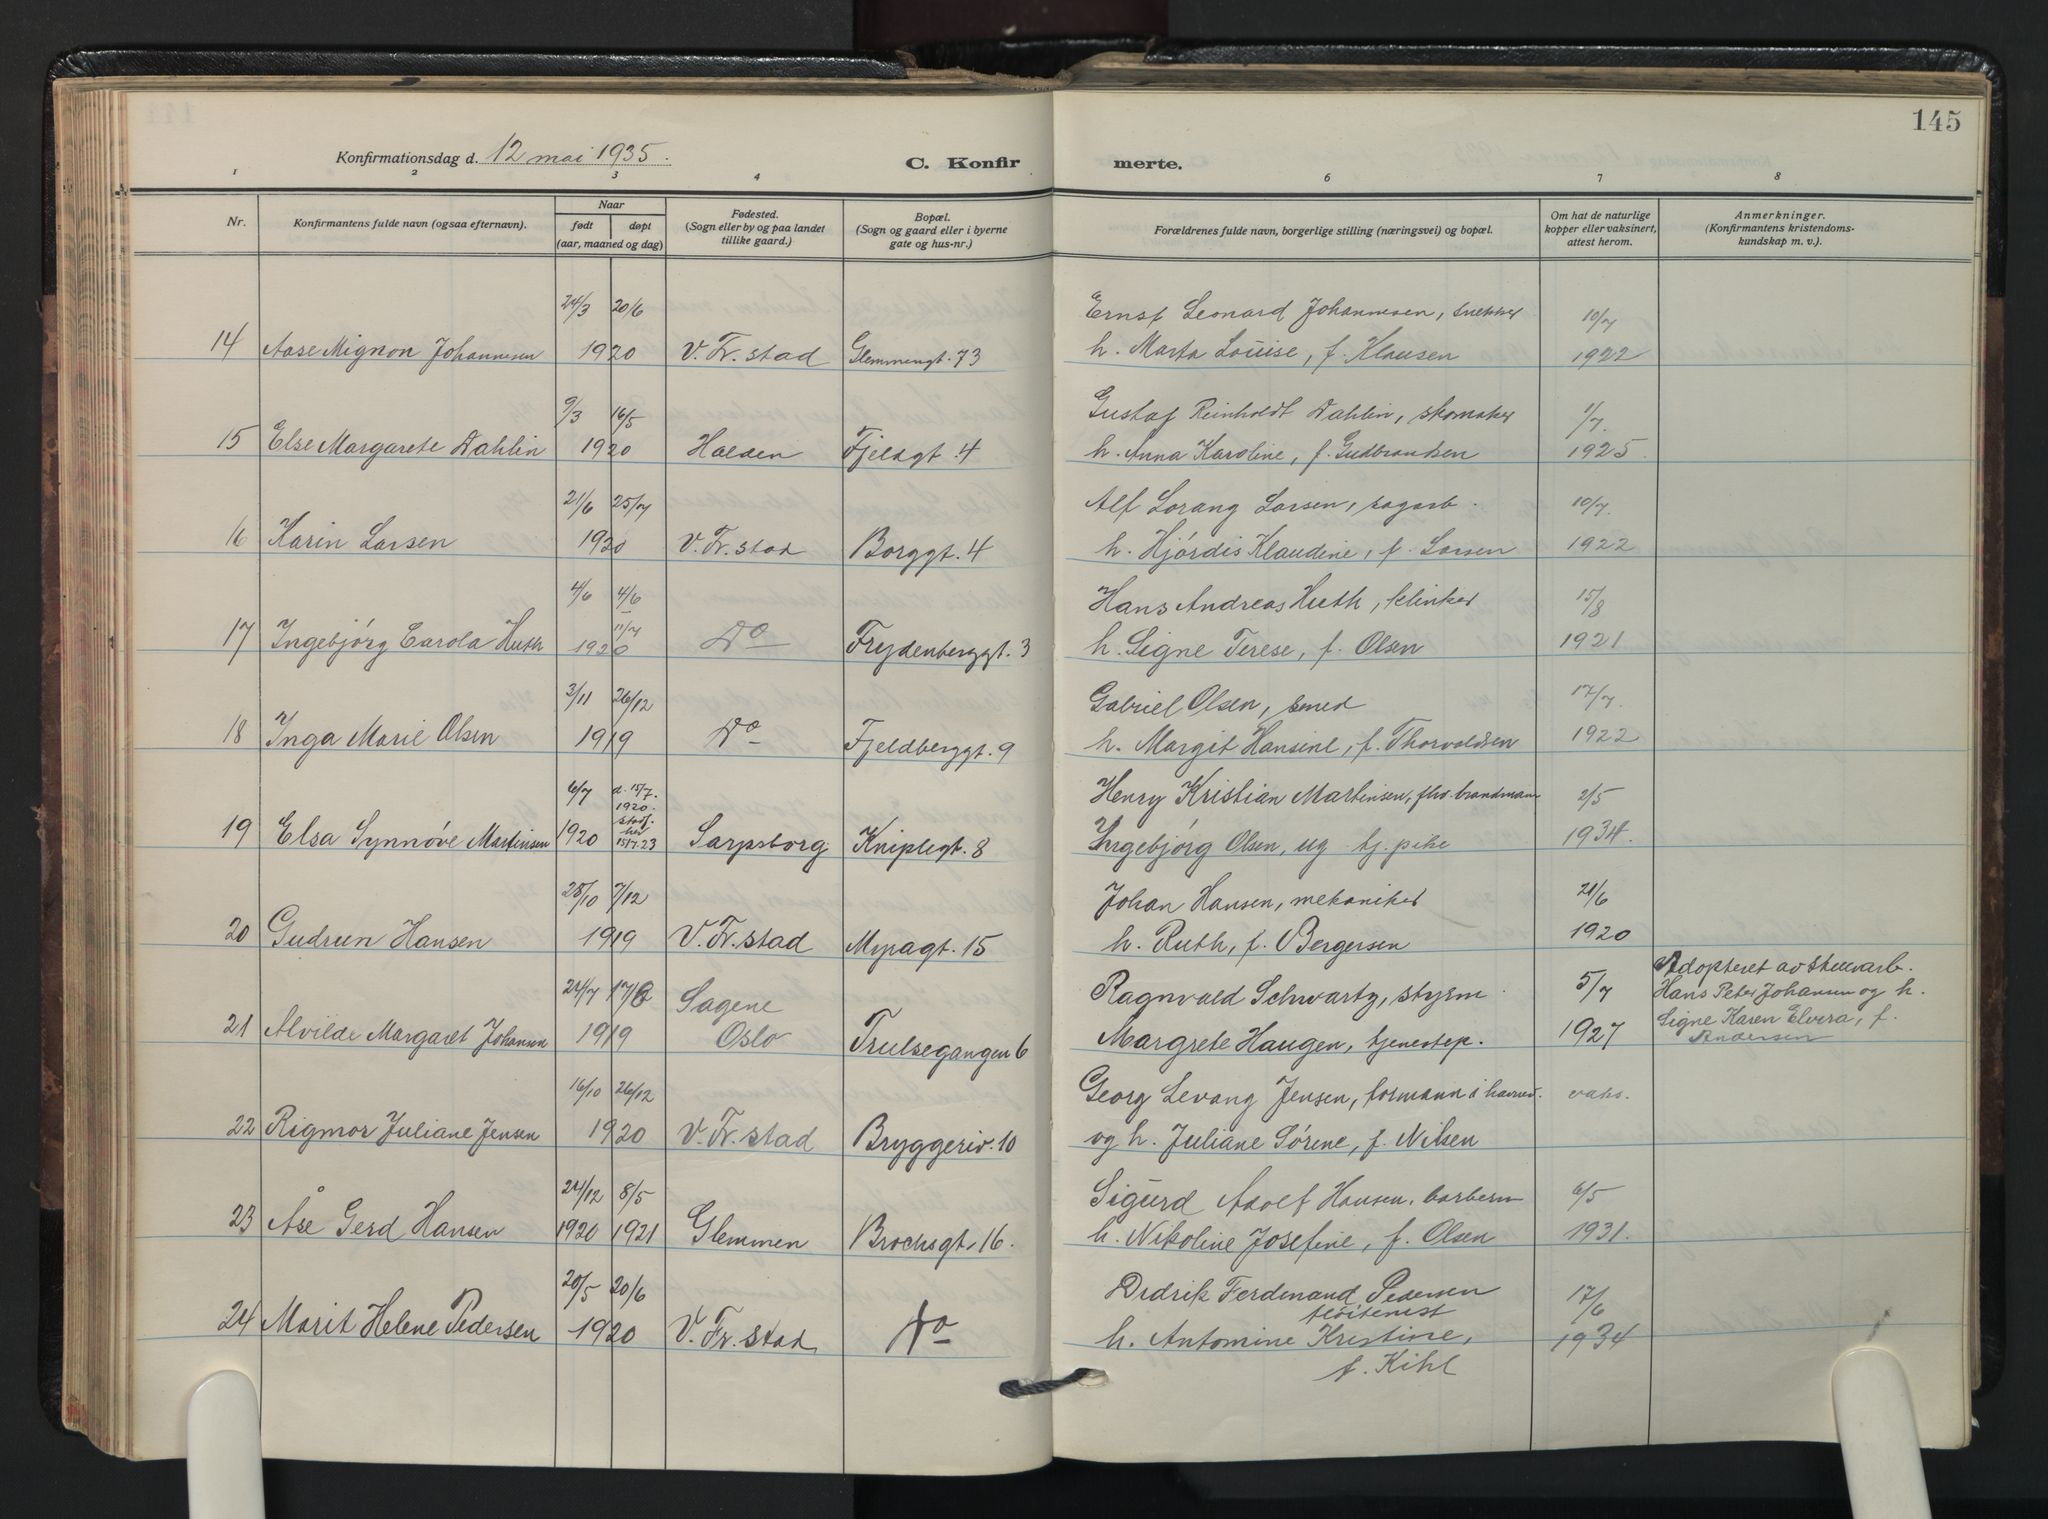 145
Konfirmationsdag d. 12 mai 1935.
C. Konfirmerte.
1 2 3 4 6 7 8
Nr.
Konfirmantens fulde navn (ogsaa efternavn).
Naar
født døpt
(aar, maaned og dag)
Fødested.
(Sogn eller by og paa landet
tillike gaard.)
Bopæl.
(Sogn og gaard eller i byerne
gate og hus-nr.)
Forældrenes fulde navn, borgerlige stilling (næringsvei) og bopæl.
Om hat de naturlige
kopper eller vaksinert,
attest herom.
Anmerkninger.
(Konfirmantens kristendoms-
kundskap m. v.).
24/3 20/6 Ernst Leonard Johannesen, snekker 10/7
14 Aase Mignon Johannesen 1920 V. Fr. stad Glemmengt. 73 h. Marta Louise, f. Klausen 1922
9/3 16/5 Gustaf Reinholdt Dahlin, skomaker 1/7.
15 Else Margarete Dahlin 1920 Halden Fjeldgt. 4 h. Anna Karoline, f. Gudbrandsen 1925.
21/6 25/7 Alf Lorang Larsen, sagarb. 10/7.
16 Karin Larsen 1920 V. Fr. stad Borggt. 4 h. Hjørdis Klaudine, f. Larsen 1922
4/6 4/6 Hans Andreas Huth, klinker 15/8
17 Ingebjørg Carola Huth 1920 11/7 Do Frydenberggt. 3 h. Signe Terese, f. Olsen 1921
3/11 26/12 Gabriel Olsen, smed 17/7.
18 Inga Marie Olsen 1919 Do Fjeldberggt. 9 h. Margit Hansine, f. Thorvaldsen 1922
6/7 d. 15/7. 1920. Henry Kristian Martinsen, fhv. brandmann 2/5
19 Elsa Synnøve Martinsen 1920 stadf. her 15/7.23 Sarpsborg Kniplegt. 8 Ingebjørg Olsen, ug tj. pike 1934.
28/10 7/12 Johan Hansen, mekaniker 21/6
20 Gudrun Hansen 1919 V. Fr. stad Myragt. 15 h. Ruth, f. Bergersen 1920
24/7 Sagene Ragnvald Schwartz, styrm 5/7 Adopteret av
Hans Peter Johansen og h.
21 Alvilde Margaret Johansen 1919 Oslo Trulsegangen 6 Margrete Haugen, tjenestep. 1927 Signe Karen Elvira, f.
Andersen
16/10 26/12 Georg Levang Jensen, formann i havnev. vaks.
22 Rigmor Juliane Jensen 1920 V. Fr. stad Bryggeriv. 10 og h. Juliane Sørene, f. Nilsen
24/12 8/5 Sigurd Adolf Hansen, barberm 6/5
23 Åse Gerd Hansen 1920 1921 Glemmen Brochsgt. 16. h. Nikoline Josefine, f. Olsen 1931.
20/5 20/6 Didrik Ferdinand Pedersen 17/6
24 Marit Helene Pedersen 1920 V. Fr. stad Do h. Antomine Kristine, 1934
f. Kihl